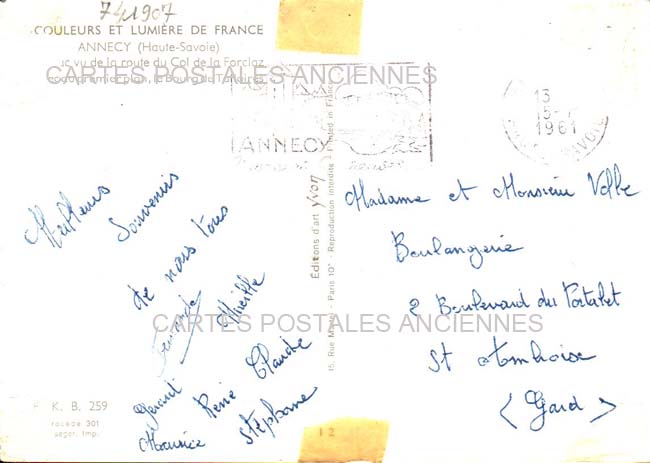 741907
COULEURS ET LUMIÈRE DE FRANCE
ANNECY (Haute-Savoie)
vu de la route du Col de la Forclaz
CARTES POSTALES ANCIENNES
ANNECY
13
15
1961
SAVOIE
Meilleurs
Souvenirs
de nous tous
Fernande
Mireille
Gérard
René
Claude
Maurice
Stéphane
Editions d'art yvon
15, Rue Martel - Paris 10e - Reproduction interdite - Printed in France
Madame et Monsieur Volle
Boulangerie
2 Boulevard du Portalet
St Ambroise
(Gard)
CARTES POSTALES ANCIENNES
K. B. 259
racede 301
seger. Imp.
12